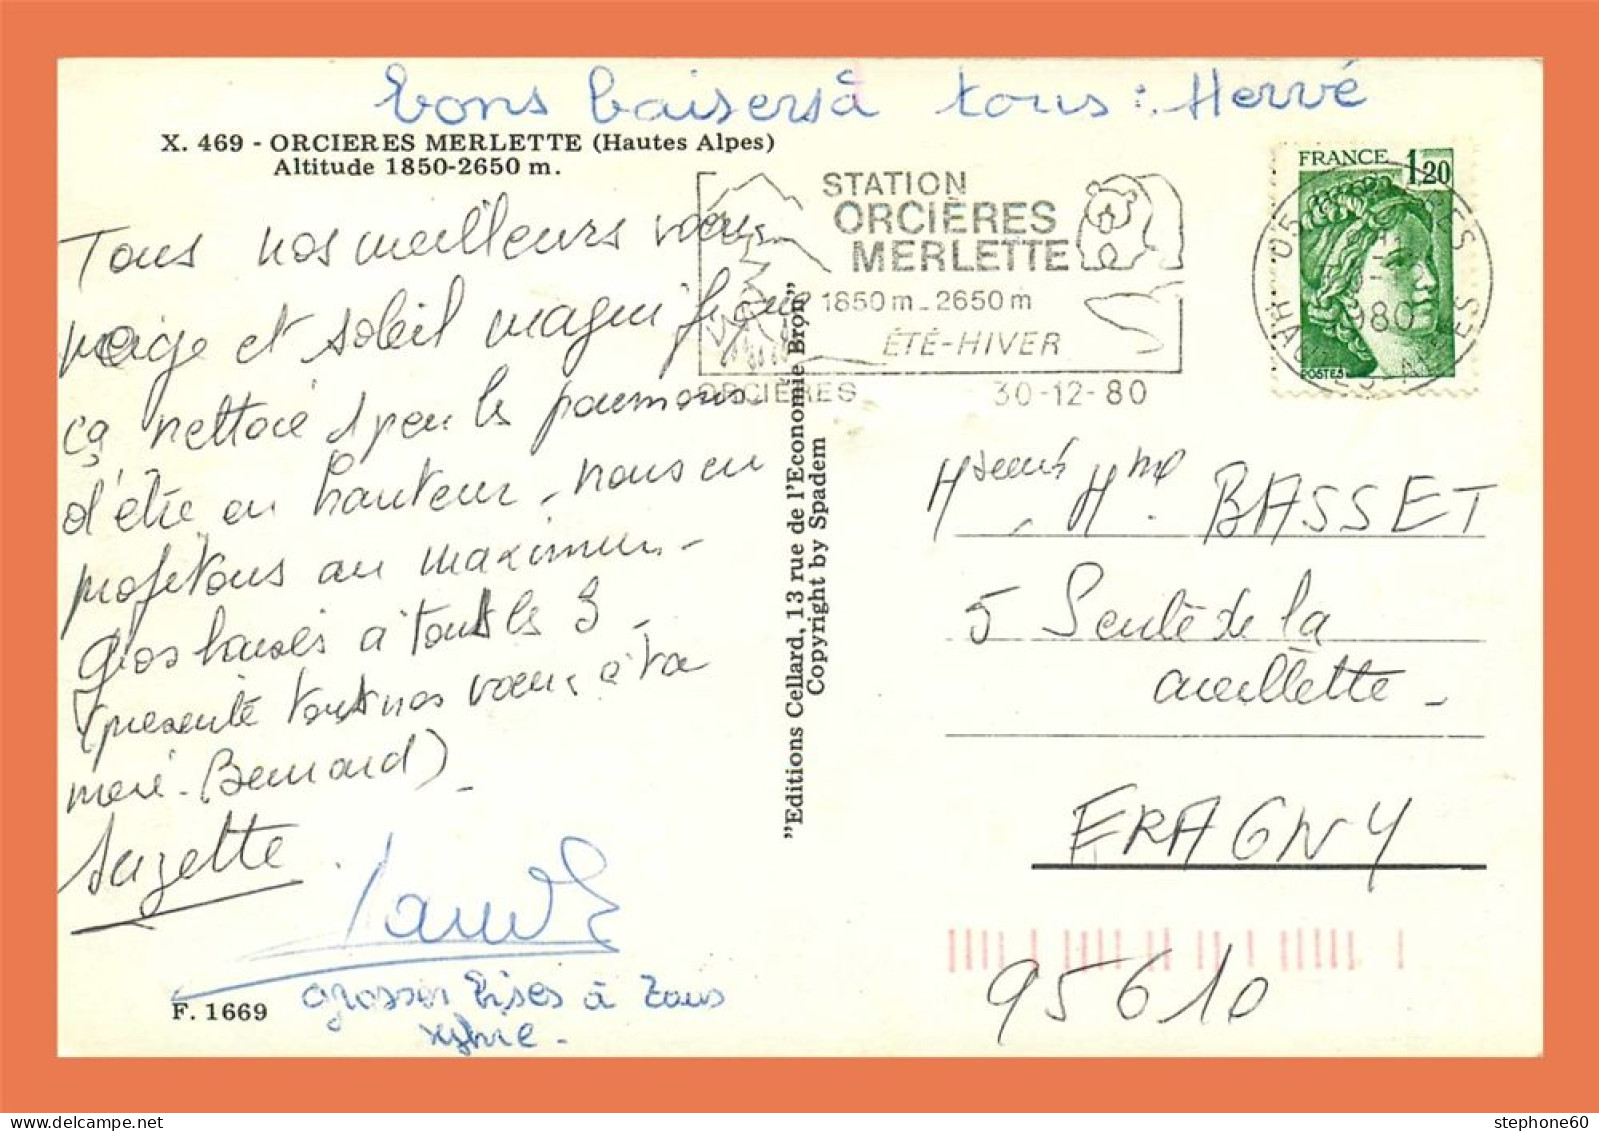 bons baisers à tous : Hervé
X. 469 - ORCIERES MERLETTE (Hautes Alpes)
Altitude 1850-2650 m.
Tous nos meilleurs vœux
neige et soleil magnifique
ça nettoie 1 peu les poumons
d'être en hauteur - nous en
profitons au maximum -
Gros baisers à tous les 3 -
(présente tout nos vœux à ta
mère - Bernard) -
Suzette.
grosses bises à tous
Sylvie -
F. 1669
"Editions Cellard, 13 rue de l'Economie Bron"
Copyright by Spadem
STATION
ORCIÈRES
MERLETTE
1850 m - 2650 m
ÉTÉ-HIVER
ORCIÈRES 30-12-80
FRANCE 1,20
POSTES
05
980
HAUTES ALPES
BASSET
5 Sente de la
cueillette -
ERAGNY
95610
stephone60